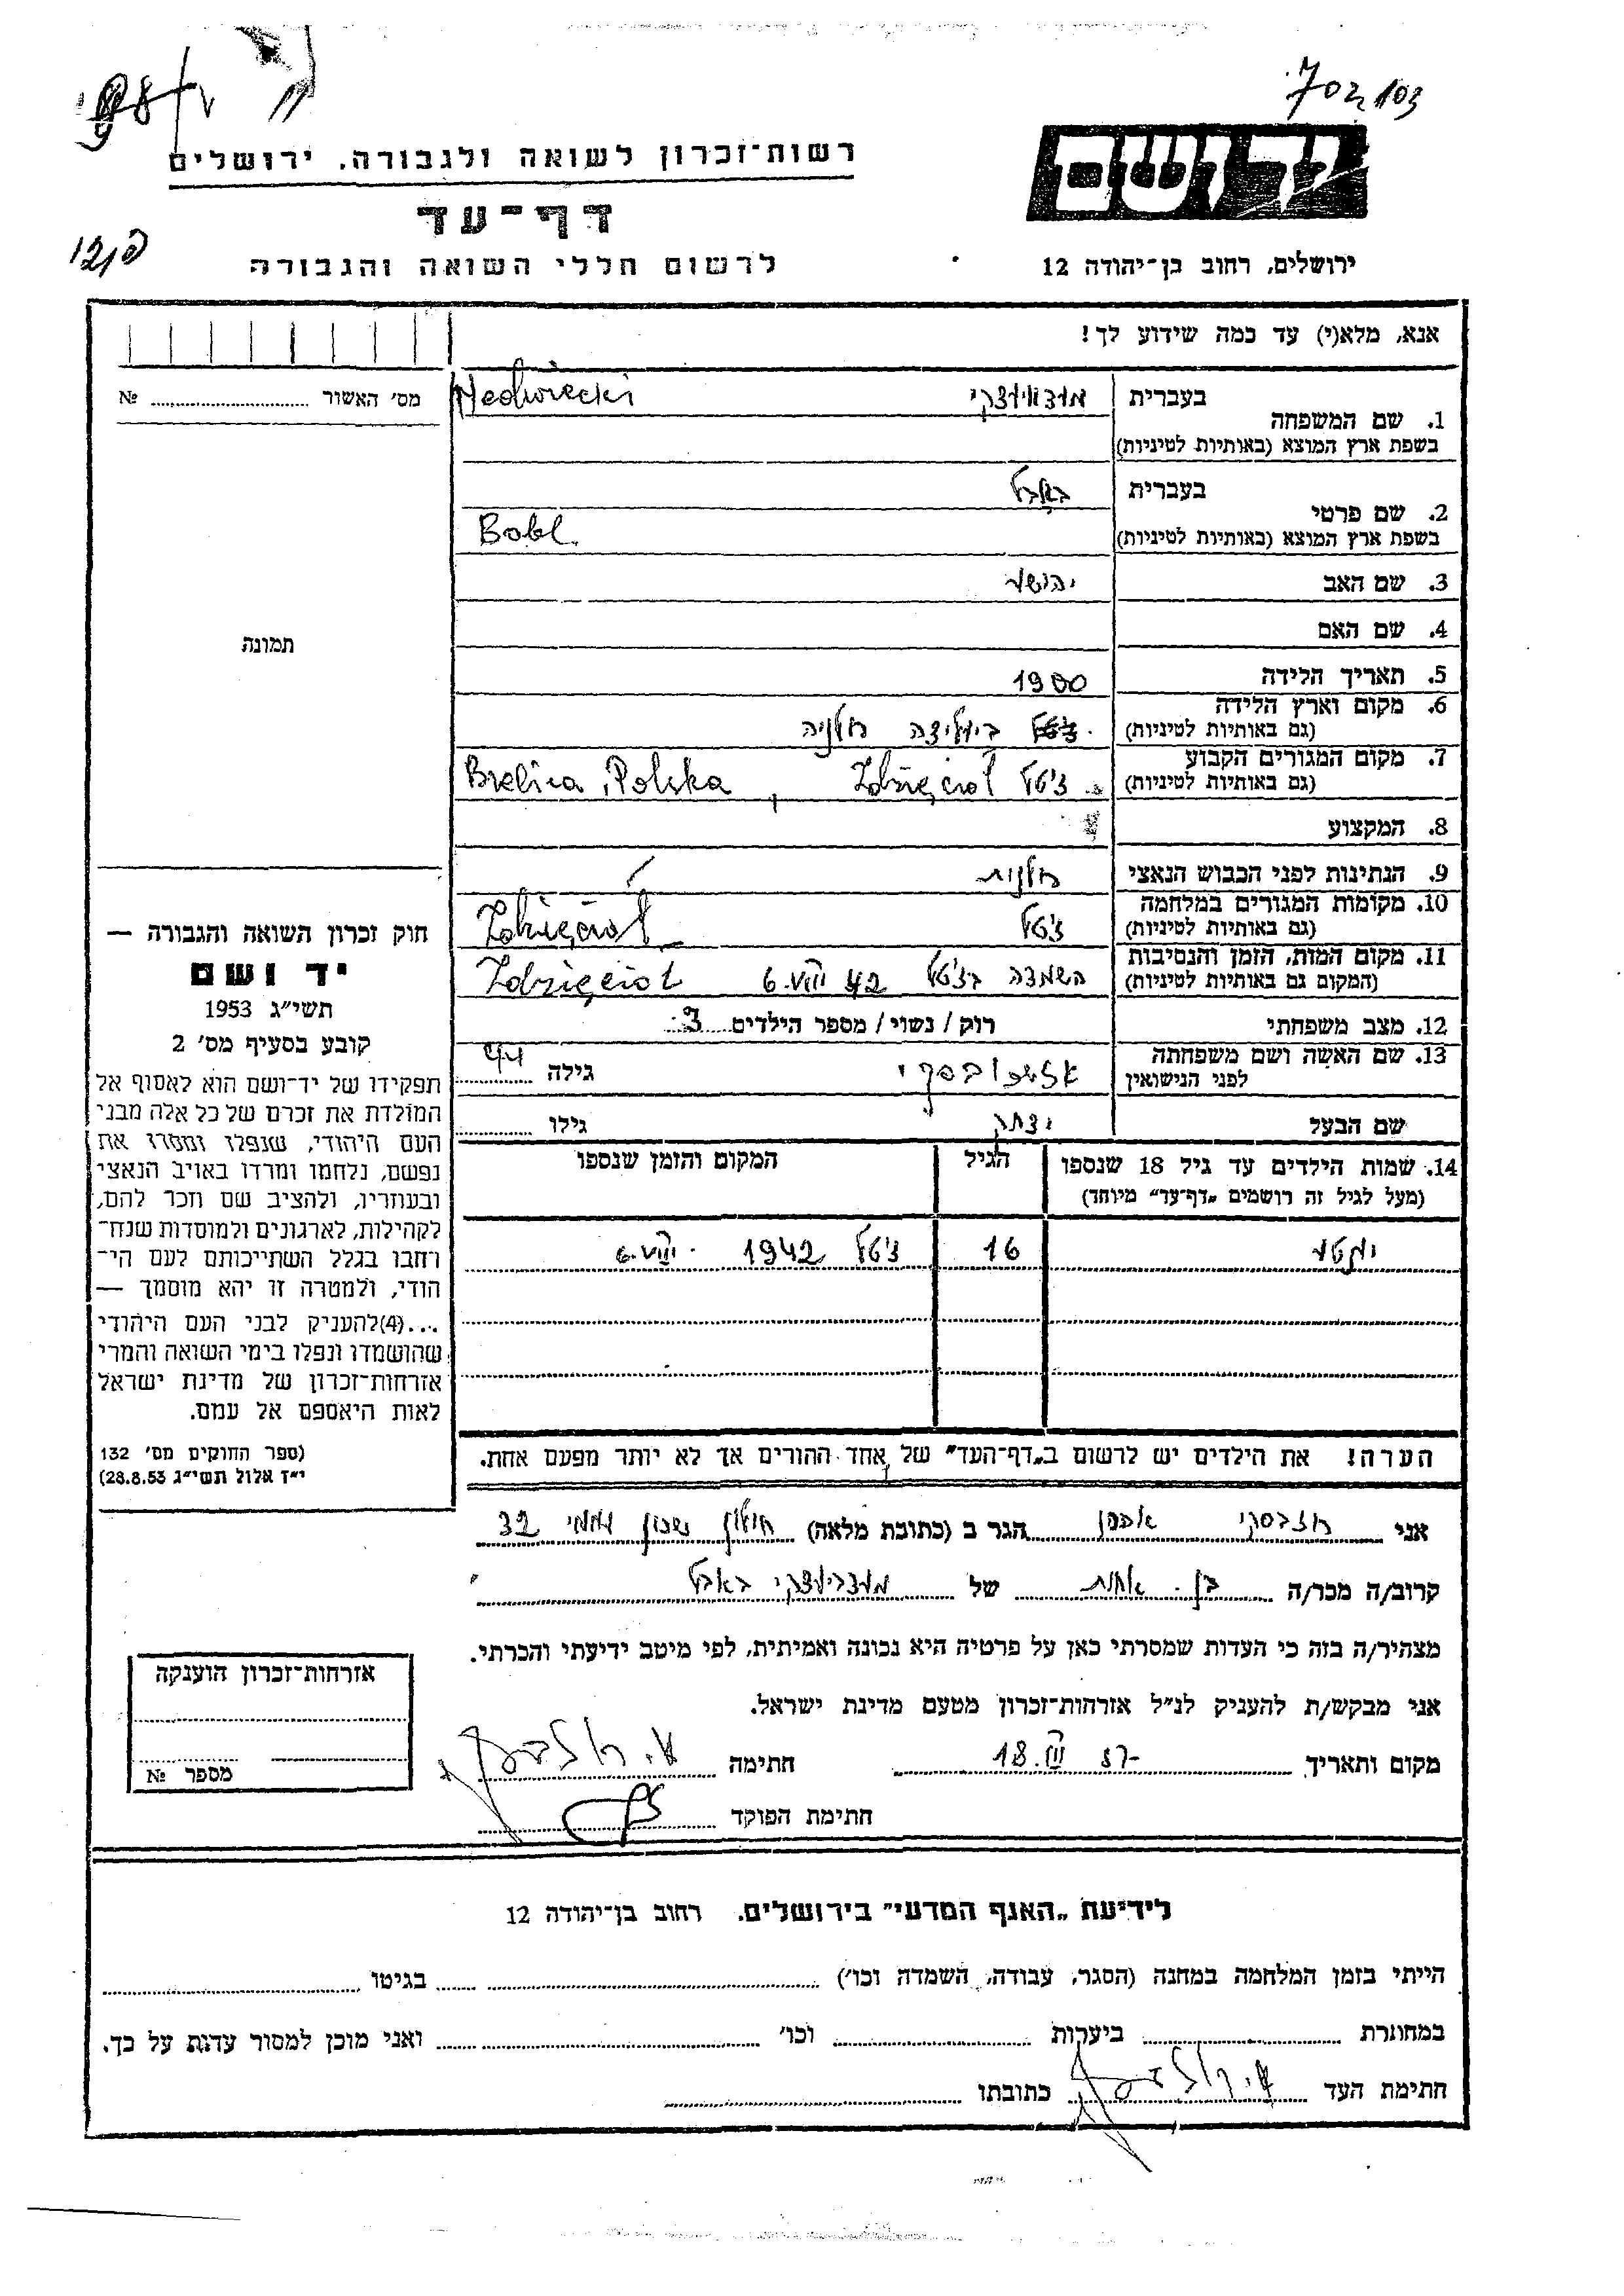 702 103
רשות־זכרון לשואה ולגבורה, ירושלים
יד ושם
דף־עד
לרשום חללי השואה והגבורה
ירושלים, רחוב בן־יהודה 12
אנא, מלא(י) עד כמה שידוע לך!
מס׳ האשור №
1. שם המשפחה
בעברית
בשפת ארץ המוצא (באותיות לטיניות)
2. שם פרטי
בעברית באבל
בשפת ארץ המוצא (באותיות לטיניות) Bobl.
3. שם האב יהושע
4. שם האם
5. תאריך הלידה 1900
6. מקום וארץ הלידה פולניה
(גם באותיות לטיניות)
7. מקום המגורים הקבוע ז׳טל Zdzięcioł , Polska
(גם באותיות לטיניות)
8. המקצוע
9. הנתינות לפני הכבוש הנאצי פולנית
10. מקומות המגורים במלחמה ז׳טל Zdzięcioł
(גם באותיות לטיניות)
11. מקום המות, הזמן והנסיבות השמדה בז׳טל 6.VIII 42 Zdzięcioł
(המקום גם באותיות לטיניות)
12. מצב משפחתי רוק / נשוי / מספר הילדים 3
13. שם האשה ושם משפחתה
לפני הנישואין גילה 44
שם הבעל יצחק גילו
14. שמות הילדים עד גיל 18 שנספו הגיל המקום והזמן שנספו
(מעל לגיל זה רושמים „דף־עד״ מיוחד)
16 ז׳טל 1942 6.VIII
הערה! את הילדים יש לרשום ב„דף־העד״ של אחד ההורים אך לא יותר מפעם אחת.
תמונה
חוק זכרון השואה והגבורה —
יד ושם
תשי״ג 1953
קובע בסעיף מס׳ 2
תפקידו של יד־ושם הוא לאסוף אל
המולדת את זכרם של כל אלה מבני
העם היהודי, שנפלו ומסרו את
נפשם, נלחמו ומרדו באויב הנאצי
ובעוזריו, ולהציב שם וזכר להם,
לקהילות, לארגונים ולמוסדות שנח־
רחבו בגלל השתייכותם לעם הי־
הודי, ולמטרה זו יהא מוסמך —
...(4) להעניק לבני העם היהודי
שהושמדו ונפלו בימי השואה והמרי
אזרחות־זכרון של מדינת ישראל
לאות היאספם אל עמם.
(ספר החוקים מס׳ 132
י״ז אלול תשי״ג 28.8.53)
אני הגר ב (כתובת מלאה) חולון שכון עממי 32
קרוב/ה מכר/ה בן. אחות של באבל
מצהיר/ה בזה כי העדות שמסרתי כאן על פרטיה היא נכונה ואמיתית, לפי מיטב ידיעתי והכרתי.
אני מבקש/ת להעניק לנ״ל אזרחות־זכרון מטעם מדינת ישראל.
מקום ותאריך חתימה
חתימת הפוקד
אזרחות־זכרון הוענקה
מספר №
לידיעת „האגף המדעי״ בירושלים. רחוב בן־יהודה 12
הייתי בזמן המלחמה במחנה (הסגר, עבודה, השמדה וכו׳) בגיטו
במחתרת ביערות וכו׳ ואני מוכן למסור עדות על כך.
חתימת העד כתובתו